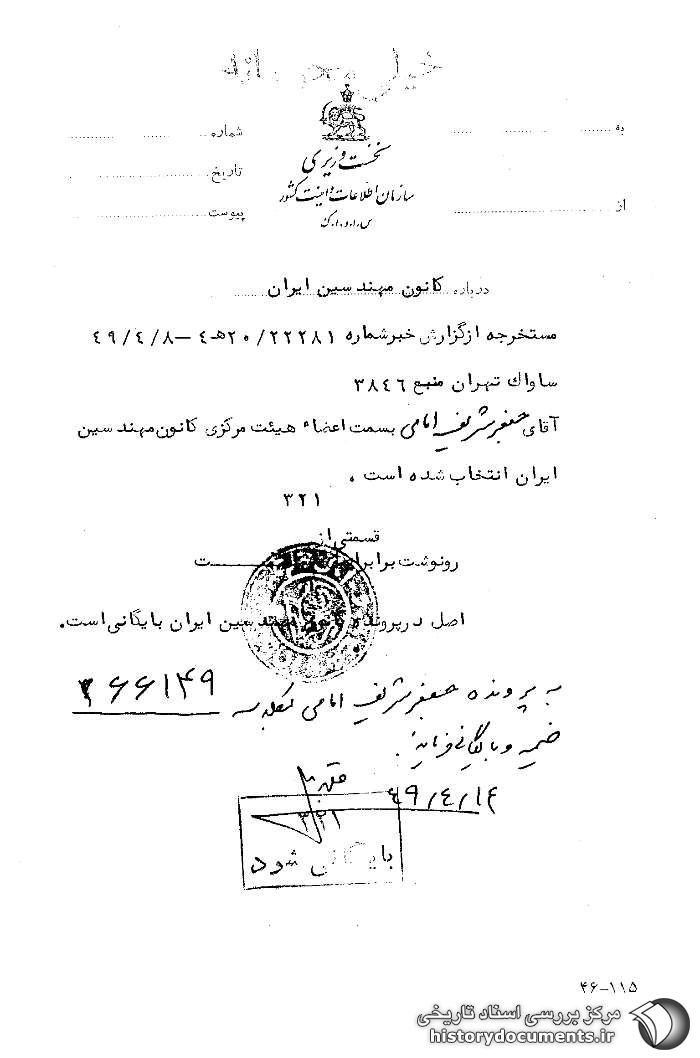 خیلی محرمانه
به
شماره
نخست وزیری
تاریخ
سازمان اطلاعات و امنیت کشور
از
پیوست
س.ا.و.ا.ک
درباره کانون مهندسین ایران
مستخرجه از گزارش خبر شماره ۲۰/۲۲۲۸۱ه‍ـ٤ – ٤۹/٤/۸
ساواک تهران منبع ۳۸٤٦
آقای جعفر شریف امامی بسمت اعضاء هیئت مرکزی کانون مهندسین
ایران انتخاب شده است .
۳۲۱
قسمتی از
رونوشت برابر است
اصل در پرونده کانون مهندسین ایران بایگانی است.
به پرونده جعفر شریف امامی بکلاسه ۳۶۶۱۴۹
ضمیمه و بایگانی فرمائید.
٤۹/٤/۱٤
۳۲۱
بایگانی شود
۴۶-۱۱۵
مرکز بررسی اسناد تاریخی
historydocuments.ir